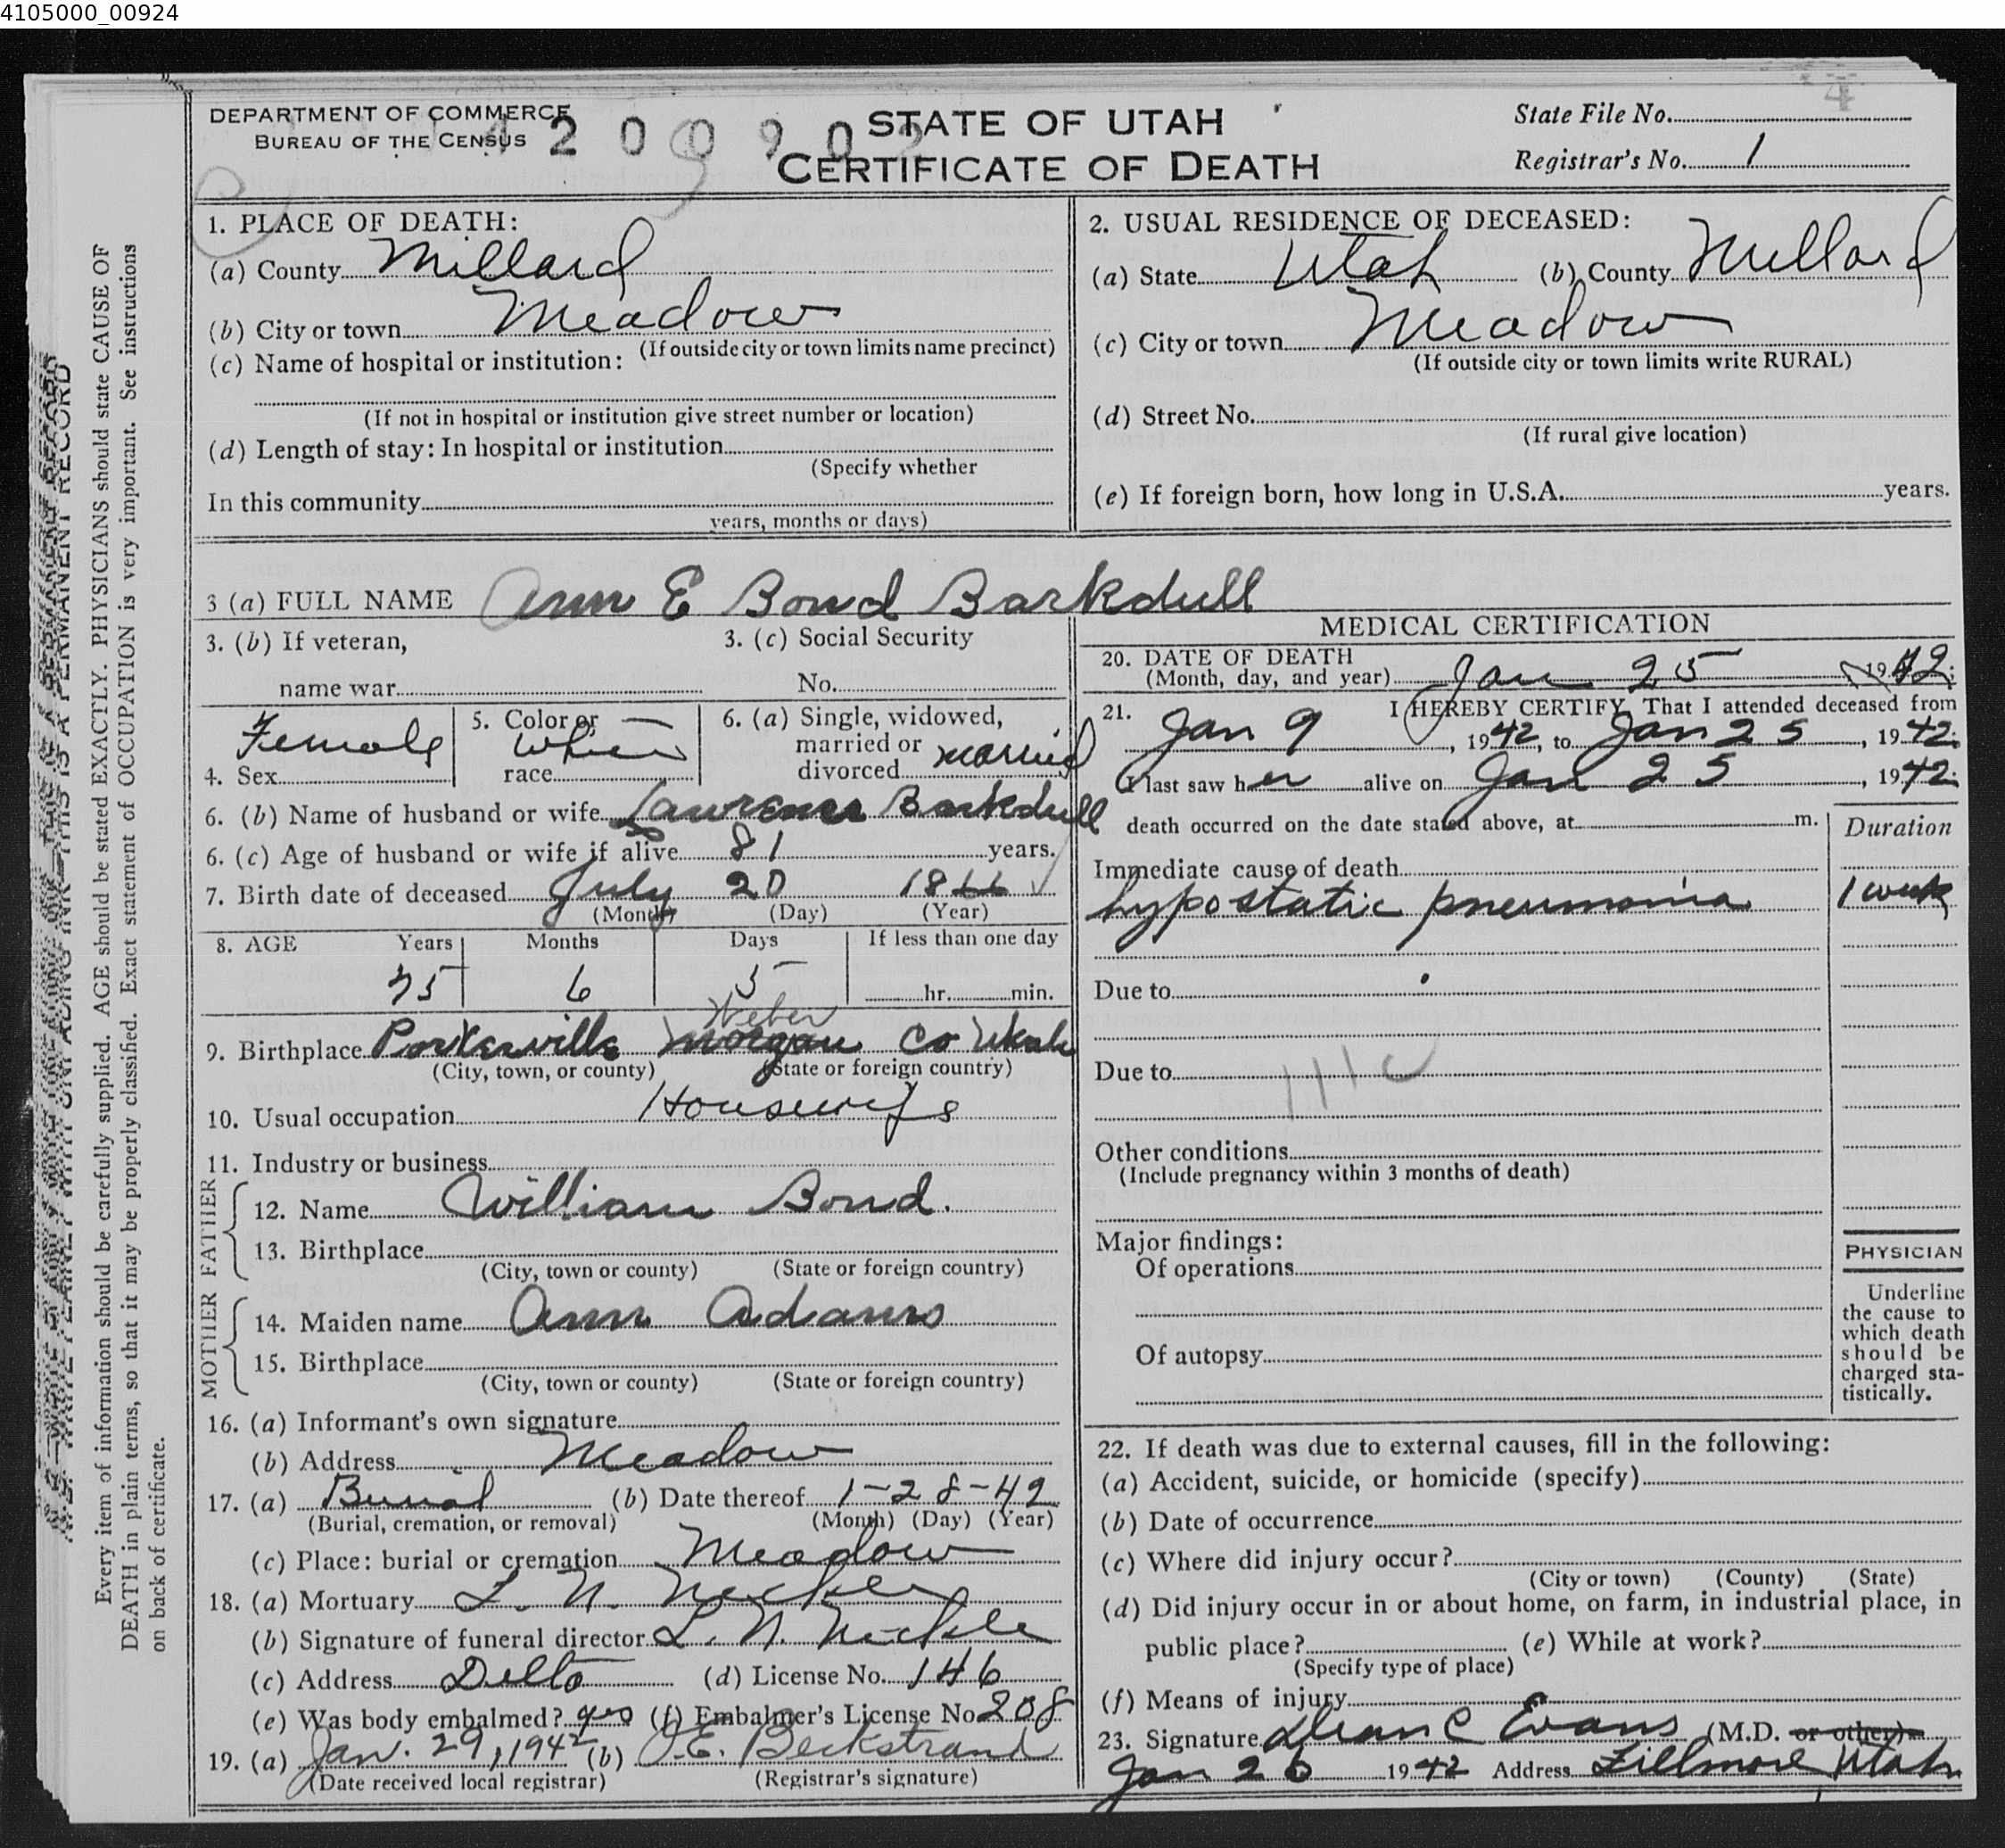 4105000_00924
DEPARTMENT OF COMMERCE
BUREAU OF THE CENSUS
STATE OF UTAH
CERTIFICATE OF DEATH
State File No. 4
Registrar's No. 1
1. PLACE OF DEATH:
(a) County Millard
(b) City or town Meadow
(If outside city or town limits name precinct)
(c) Name of hospital or institution:
(If not in hospital or institution give street number or location)
(d) Length of stay: In hospital or institution
(Specify whether
In this community
years, months or days)
2. USUAL RESIDENCE OF DECEASED:
(a) State Utah (b) County Millard
(c) City or town Meadow
(If outside city or town limits write RURAL)
(d) Street No.
(If rural give location)
(e) If foreign born, how long in U.S.A. years.
3 (a) FULL NAME Ann E Bond Barkdull
3. (b) If veteran,
name war
3. (c) Social Security
No.
4. Sex Female
5. Color or race White
6. (a) Single, widowed,
married or
divorced married
6. (b) Name of husband or wife Lawrence Barkdull
6. (c) Age of husband or wife if alive 81 years.
7. Birth date of deceased July 20 1866
(Month) (Day) (Year)
8. AGE Years Months Days If less than one day
75 6 5 hr. min.
Weber
9. Birthplace Porterville Morgan Co Utah
(City, town, or county) (State or foreign country)
10. Usual occupation Housewife
11. Industry or business
FATHER
12. Name William Bond.
13. Birthplace
(City, town or county) (State or foreign country)
MOTHER
14. Maiden name Ann Adams
15. Birthplace
(City, town or county) (State or foreign country)
16. (a) Informant's own signature
(b) Address Meadow
17. (a) Burial (b) Date thereof 1-28-42
(Burial, cremation, or removal) (Month) (Day) (Year)
(c) Place: burial or cremation Meadow
18. (a) Mortuary L. N. Nickle
(b) Signature of funeral director L. N. Nickle
(c) Address Delta (d) License No. 146
(e) Was body embalmed? yes (f) Embalmer's License No. 208
19. (a) Jan. 29, 1942 (b) O.E. Beckstrand
(Date received local registrar) (Registrar's signature)
MEDICAL CERTIFICATION
20. DATE OF DEATH
(Month, day, and year) Jan 25 1942
21. I HEREBY CERTIFY, That I attended deceased from
Jan 9, 1942, to Jan 25, 1942.
I last saw her alive on Jan 25, 1942.
death occurred on the date stated above, at m.
Duration
Immediate cause of death
hypostatic pneumonia 1 week
Due to
Due to
Other conditions
(Include pregnancy within 3 months of death)
Major findings:
Of operations
Of autopsy
PHYSICIAN
Underline
the cause to
which death
should be
charged sta-
tistically.
22. If death was due to external causes, fill in the following:
(a) Accident, suicide, or homicide (specify)
(b) Date of occurrence
(c) Where did injury occur?
(City or town) (County) (State)
(d) Did injury occur in or about home, on farm, in industrial place, in
public place? (e) While at work?
(Specify type of place)
(f) Means of injury
23. Signature Dean C Evans (M.D. or other)
Jan 26 1942 Address Fillmore Utah
Every item of information should be carefully supplied. AGE should be stated EXACTLY. PHYSICIANS should state CAUSE OF
DEATH in plain terms, so that it may be properly classified. Exact statement of OCCUPATION is very important. See instructions
on back of certificate.